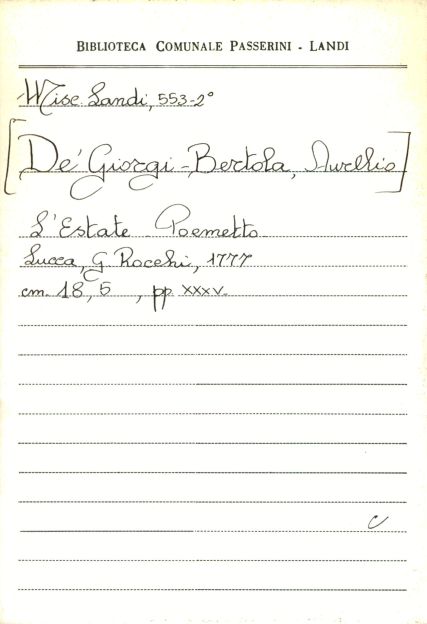 BIBLIOTECA COMUNALE PASSERINI - LANDI
Misc. Landi, 553-2°
[De' Giorgi-Bertola, Aurelio]
L'Estate Poemetto
Lucca, G. Rocchi, 1777
cm. 18,5, pp. XXXV.
c